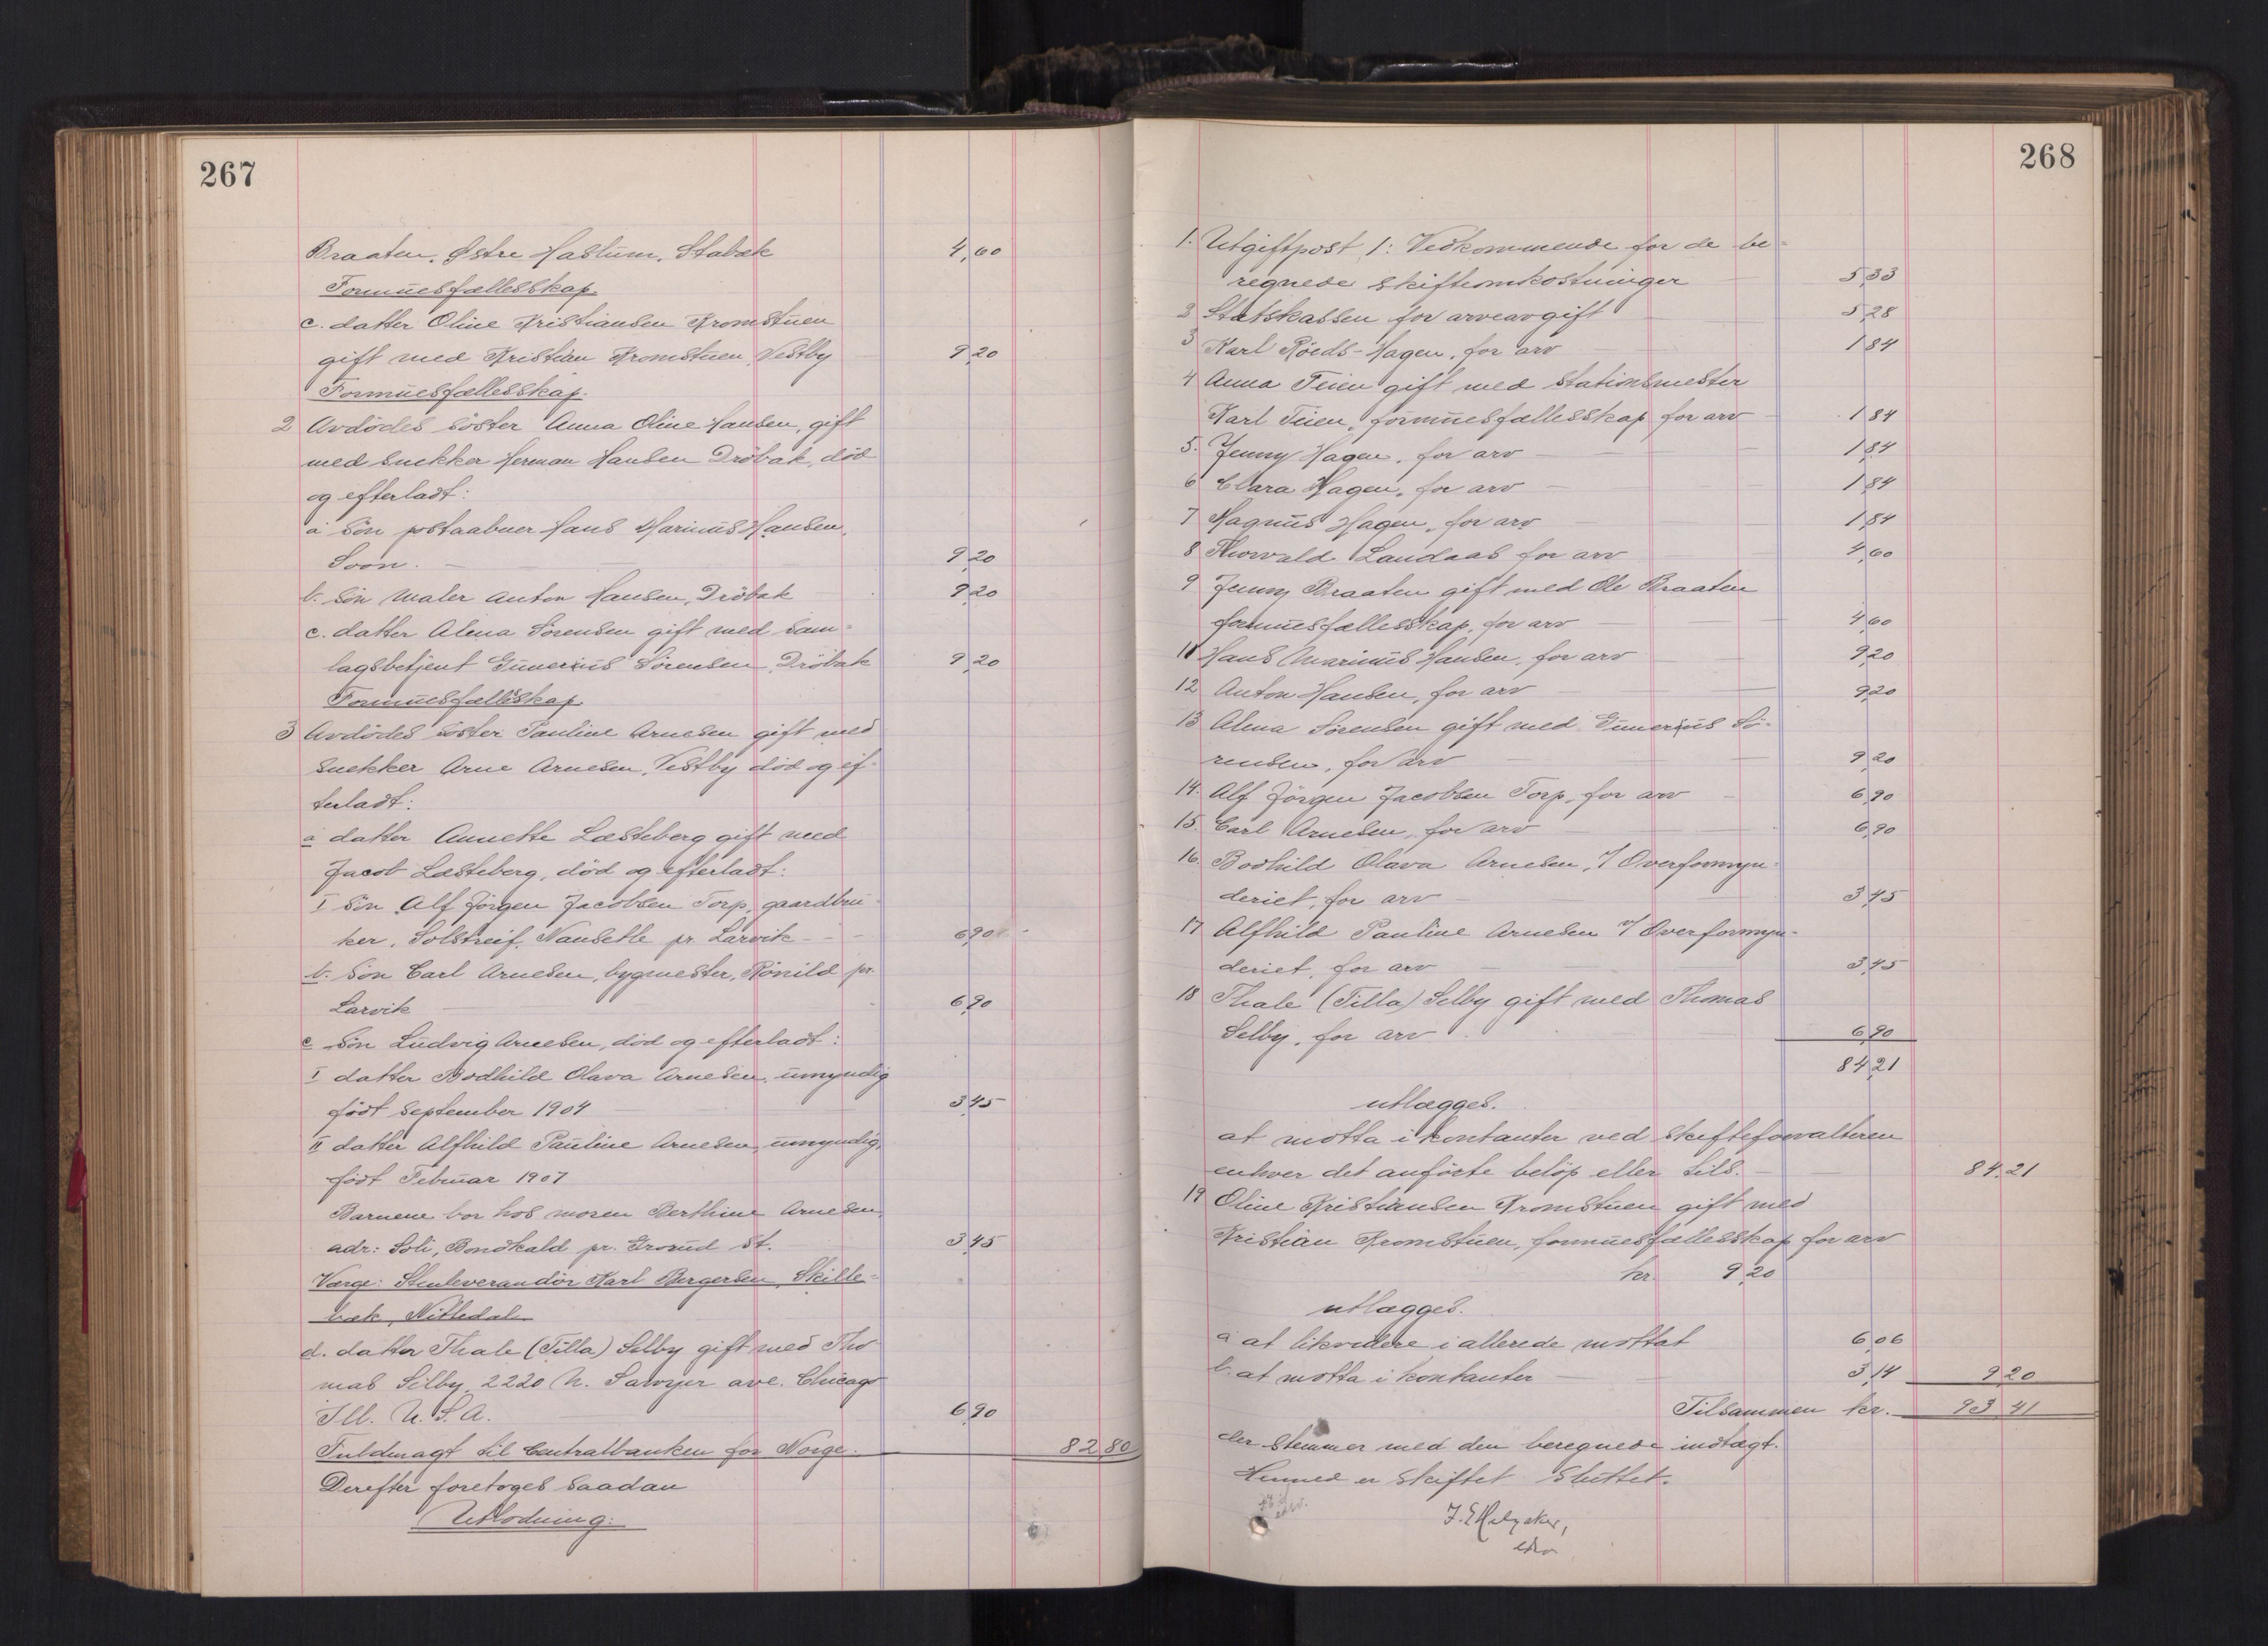 267
Braaten, Østre Haslum, Stabæk 4,60
Formuesfællesskap.
c. datter Oline Kristiansen Kromstuen
gift med Kristian Kromstuen, Vestby 9,20
Formuesfællesskap.
2 Avdödes söster Anna Oline Hansen, gift
med snekker Herman Hansen Dröbak, död
og efterladt:
a sön postaabner Hans Marinus Hansen,
Soon. 9,20
b. sön maler Anton Hansen, Dröbak 9,20
c. datter Alma Sörensen gift med sam-
lagsbetjent Gunerius Sörensen, Dröbak 9,20
Formuesfællesskap.
3 Avdödes söster Pauline Arnesen gift med
snekker Arne Arnesen, Vestby död og ef-
terladt:
a datter Annette Læsteberg gift med
Jacob Læsteberg, död og efterladt:
I sön Alf Jörgen Jacobsen Torp, gaardbru-
ker, Solstreif, Nansetle pr. Larvik 6,90
b. sön Carl Arnesen, bygmester, Rönild pr.
Larvik 6,90
c sön Ludvig Arnesen, död og efterladt:
I datter Bodhild Olava Arnesen, umyndig
född september 1904 3,45
II datter Alfhild Pauline Arnesen, umyndig,
född Februar 1907
Barnene bor hos moren Berthine Arnesen,
adr: Soli, Bondkald pr. Grorud st. 3,45
Værge: Stenleverandör Karl Bergersen, Skille-
bæk, Nittedal
d. datter Thale (Tilla) Selby gift med Tho
mas Selby, 2220 N. Sawyer ave. Chicago
Ill. U.S.A. 6,90
Fuldmagt til Centralbanken for Norge. 82,80
Derefter foretoges saadan
Utlodning:
268
1. Utgiftpost 1: Vedkommende for de be-
regnede skifteomkostninger 5,33
2 Statskassen for arveavgift 5,28
3 Karl Röeds-Hagen, for arv 1,84
4 Anna Teien gift med stationsmester
Karl Teien, formuesfællesskap for arv 1,84
5. Jenny Hagen, for arv 1,84
6 Clara Hagen, for arv 1,84
7 Magnus Hagen, for arv 1,84
8 Thorvald Landaas for arv 4,60
9 Jenny Braaten gift med Ole Braaten
formuesfællesskap, for arv 4,60
11 Hans Marinus Hansen, for arv 9,20
12 Anton Hansen, for arv 9,20
13 Alma Sörensen gift med Gunerius Sö-
rensen, for arv 9,20
14. Alf Jörgen Jacobsen Torp, for arv 6,90
15. Carl Arnesen, for arv 6,90
16. Bodhild Olava Arnesen, v/ Overformyn-
deriet, for arv 3,45
17 Alfhild Pauline Arnesen v/ Overformyn-
deriet, for arv 3,45
18 Thale (Tilla) Selby gift med Thomas
Selby, for arv 6,90
84,21
utlægges.
at motta i kontanter ved skifteforvalteren
enhver det anförte belöp eller tils. 84,21
19 Oline Kristiansen Kromstuen gift med
Kristian Kromstuen, formuesfællesskap for arv
kr. 9,20
utlægges.
a at likvidere i allerede mottat 6,06
b. at motta i kontanter 3,14 9,20
Tilsammen kr. 93,41
der stemmer med den beregnede indtægt.
Hermed er skiftet sluttet.